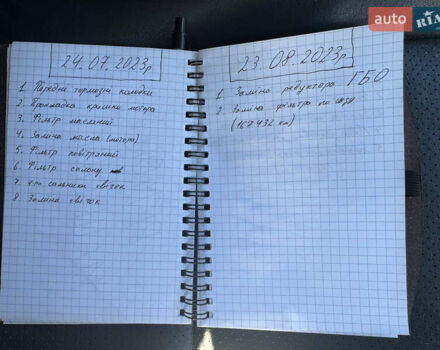 24.07.2023р
1. Передні тормозні колодки
2. Прокладка кришки мотора
3. Фільтр масляний
4. Заміна масла (мотора)
5. Фільтр повітряний
6. Фільтр салону
7. 4-ри сальники свічок
8. Заміна свічок
23.08.2023р
1. Заміна редуктора ГБО
2. Заміна фільтра по газу
(167 432 км)
auto RIA